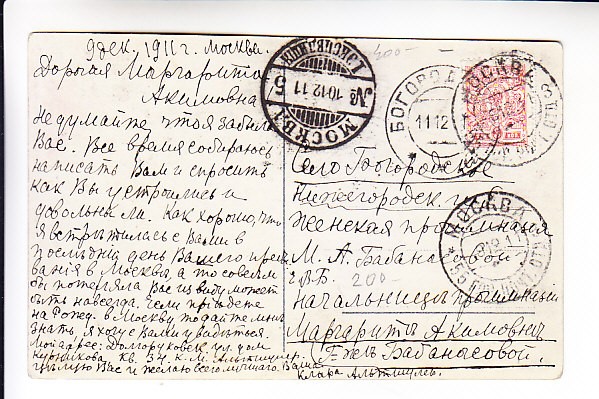 9 дек. 1911 г. Москва.
Дорогая Маргарита
Акимовна
Не думайте что я забыла
Вас. Все время собираюсь
написать Вам и спросить
как Вы устроились и
довольны ли. Как хорошо, что
я встретилась с Вами в
последний день Вашего пребы
вания в Москве, а то совсем
бы потеряла Вас из виду может
быть навсегда. Если приедете
на Рожд. в Москву то дайте мне
знать, я хочу с Вами увидеться.
Мой адрес: Долгоруковск. ул. дом
Курникова кв. 34. К. М. Альтшулер.
Целую Вас и желаю всего лучшаго. Ваша
Клара Альтшулер.
Село Богородское
Нижегородск. г.
Женская прогимназiя
М. А. Бабанасовой
200-
начальницѣ прогимназiи
Маргаритѣ Акимовнѣ
Бабанасовой.
МОСКВА
№ 10 12 11 5
БОГОРОД
11 12
МОСКВА
МОСКВА